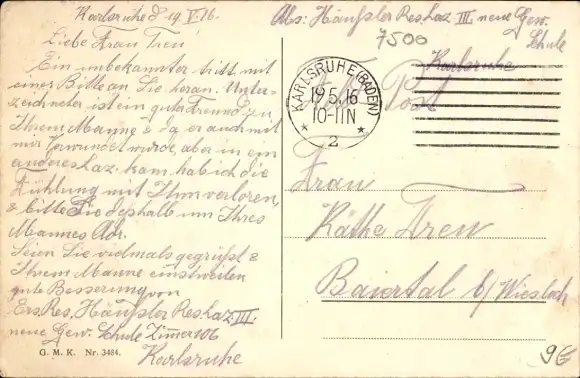 Karlsruhe d 19. V. 16.
Liebe Frau Treu
Ein unbekannter tritt mit
einer Bitte an Sie heran. Unter-
zeichneter ist ein guter Freund zu
Ihrem Manne & da er auch mit
mir verwundet wurde, aber in ein
anderes Laz. kam, hab ich die
Fühlung mit Ihm verloren,
& bitte Sie deshalb um Ihres
Mannes Adr.
Seien Sie vielmals gegrüßt &
Ihrem Manne einstweilen
gute Besserung von
Ers. Res. Häußler Res. Laz. III.
neue Gew. Schule Zimmer 106
Karlsruhe
G. M. K. Nr. 3484.
Abs: Häußler Res. Laz. III. neue Gew.
Schule
7500
Karlsruhe
KARLSRUHE (BADEN)
19.5.16
10-11N
* 2 *
Post
Frau
Käthe Treu
Baiertal b/ Wiesloch
9€